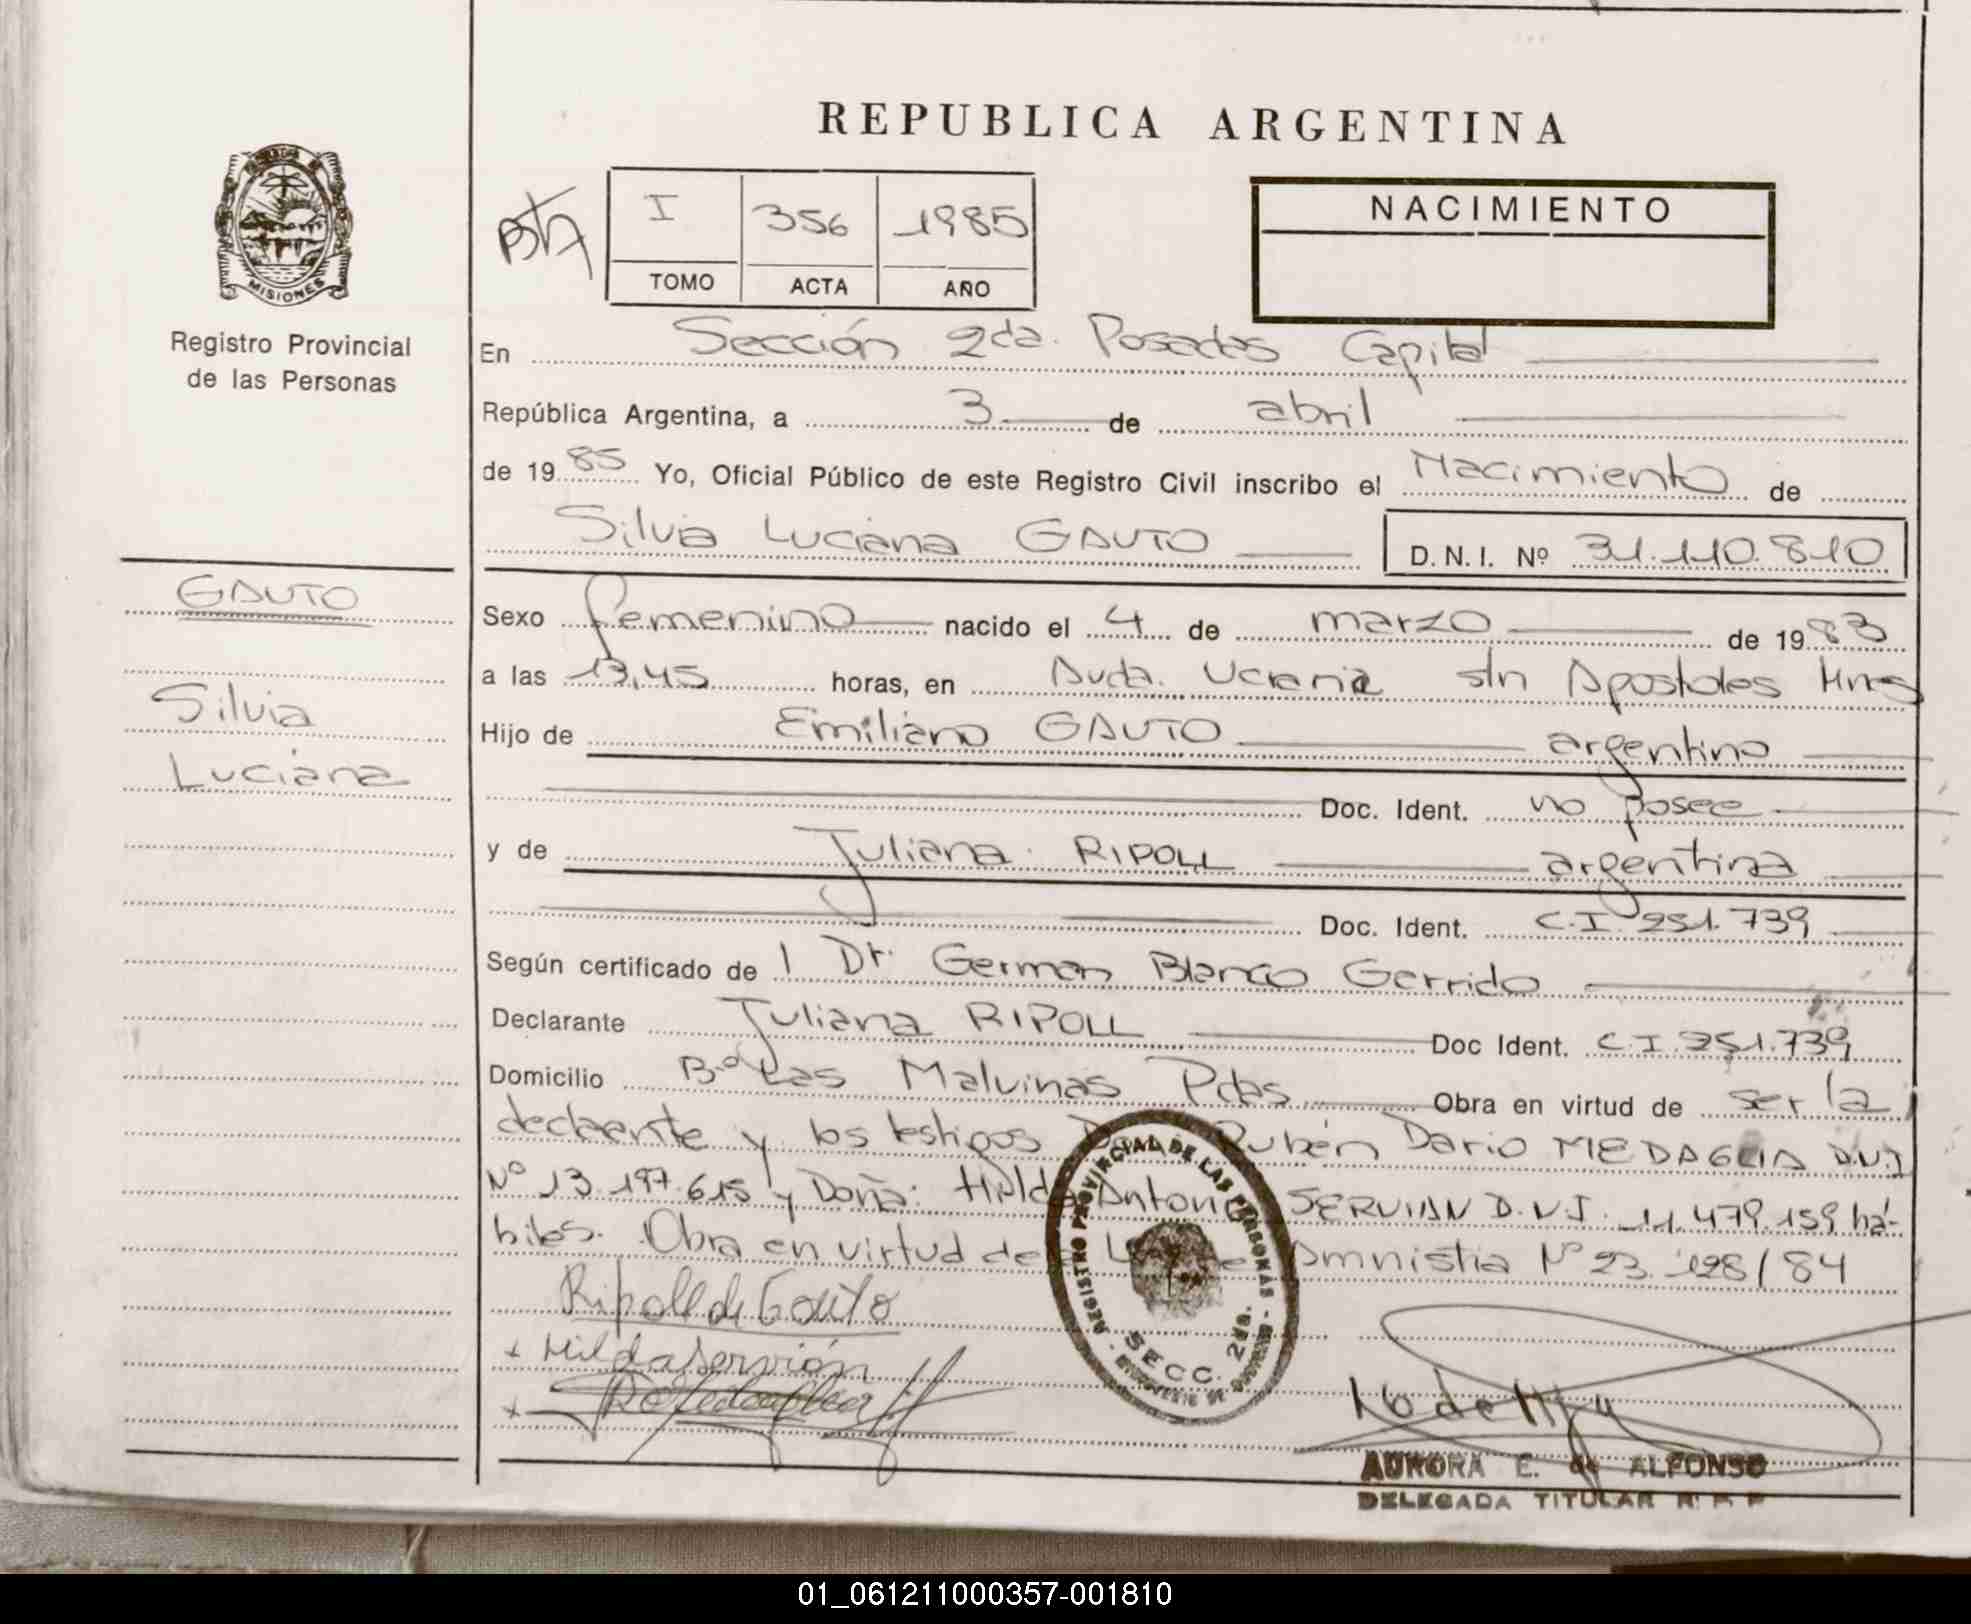 REPUBLICA ARGENTINA
I 356 1985
TOMO ACTA AÑO
NACIMIENTO
MISIONES
Registro Provincial
de las Personas
En Sección 2da. Posadas Capital
República Argentina, a 3 de abril
de 1985 Yo, Oficial Público de este Registro Civil inscribo el Nacimiento de
Silvia Luciana GAUTO D.N.I. Nº 31.110.810
GAUTO
Silvia
Luciana
Sexo femenino nacido el 4 de marzo de 1983
a las 13,45 horas, en Avda. Ucrania s/n Apostoles Mnes
Hijo de Emiliano GAUTO argentino
Doc. Ident. no posee
y de Juliana RIPOLL argentina
Doc. Ident. C.I. 251.739
Según certificado de Dr. German Blanco Garrido
Declarante Juliana RIPOLL Doc Ident. C.I. 251.739
Domicilio Bº Las Malvinas Pdas Obra en virtud de ser la
declarante y los testigos Rubén Dario MEDAGLIA D.N.I
Nº 13.197.615 y Doña: Hilda Antonia SERVIAN D.N.I. 11.479.159 há-
biles. Obra en virtud de Amnistia Nº 23.128/84
Ripoll de Gauto
x Hilda Servián
REGISTRO PROVINCIAL DE LAS PERSONAS
SECC. 2da.
AURORA E. de ALFONSO
DELEGADA TITULAR R P P
01_061211000357-001810